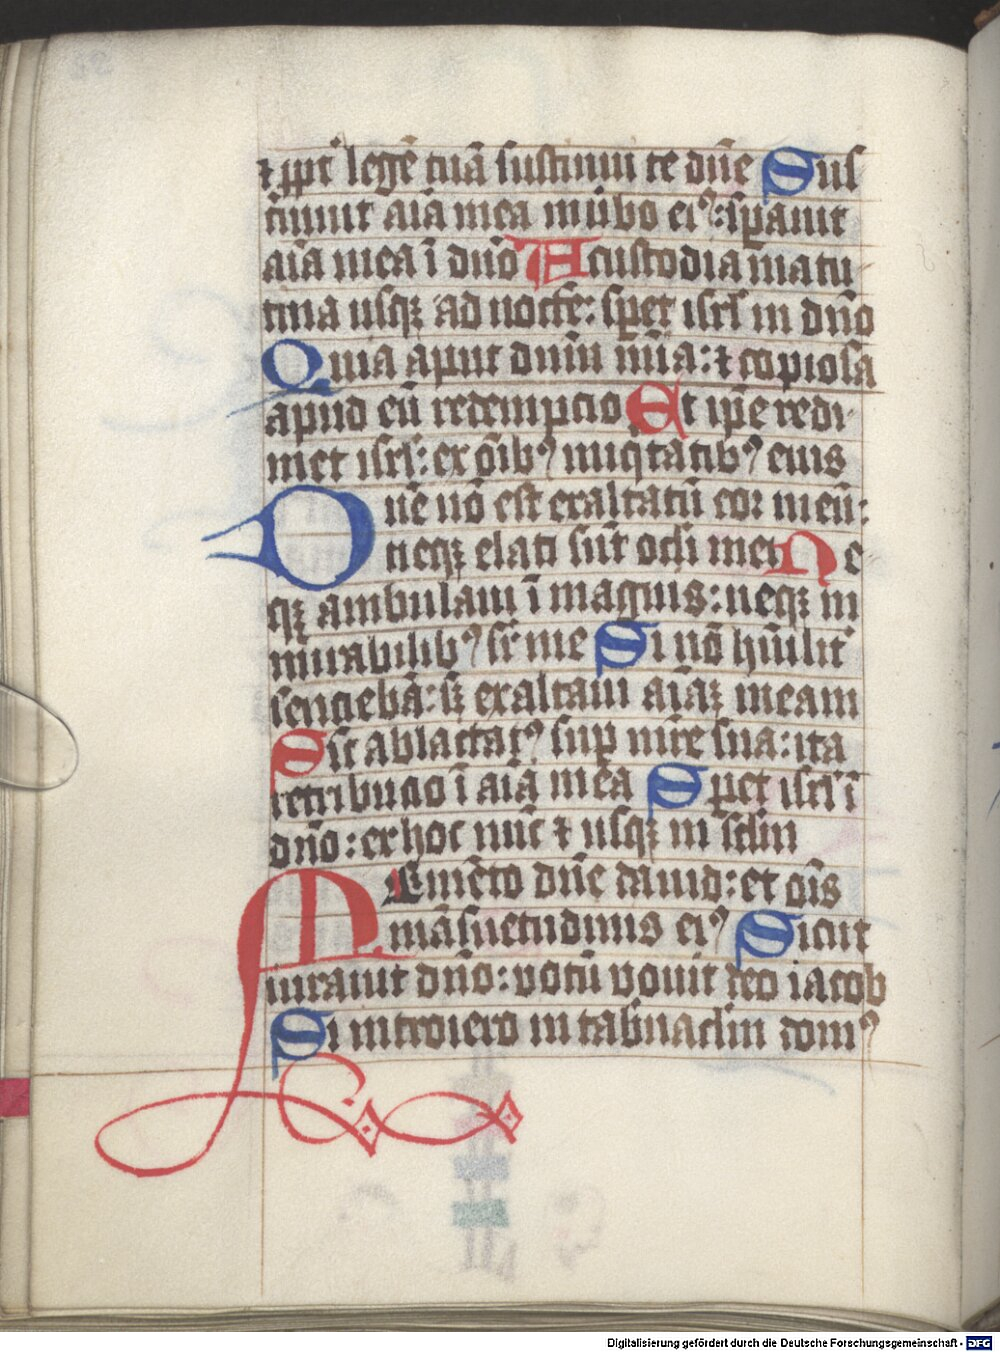 ⁊ ꝓpt̄ legē tuā sustinui te dn̄e Sus
tinuit aīa mea in ūbo eiꝰ: sꝑauit
aīa mea ī dn̄o A custodia matu
tina usqꝫ ad noctē: sꝑet isrl̄ in dn̄o
Quia aput dn̄m mīa: ⁊ copiosa
apud eū redempcio Et ip̄e redi
met isrl̄: ex oīb⁹ iniqͥtatib⁹ eius
Dn̄e nō est exaltatū cor meū:
neqꝫ elati sūt ocl̄i mei Ne
qꝫ ambulaui ī magnis: neqꝫ in
mirabilib⁹ sr̄ me Si nō hūilit̄
sentiebā: sꝫ exaltaui aīaꝫ meam
Sic̄ ablactatꝰ suꝑ mr̄e sua: ita
retribucio ī aīa mea Sꝑet isrl̄ ī
dn̄o: ex hoc nūc ⁊ usqꝫ in sclm̄
Memēto dn̄e dauid: et oīs
māsuetudinis eiꝰ Sicut
iurauit dn̄o: uotū vouit deo iacob
Si introiero in tab̄nacl̄m domꝰ
Digitalisierung gefördert durch die Deutsche Forschungsgemeinschaft - DFG